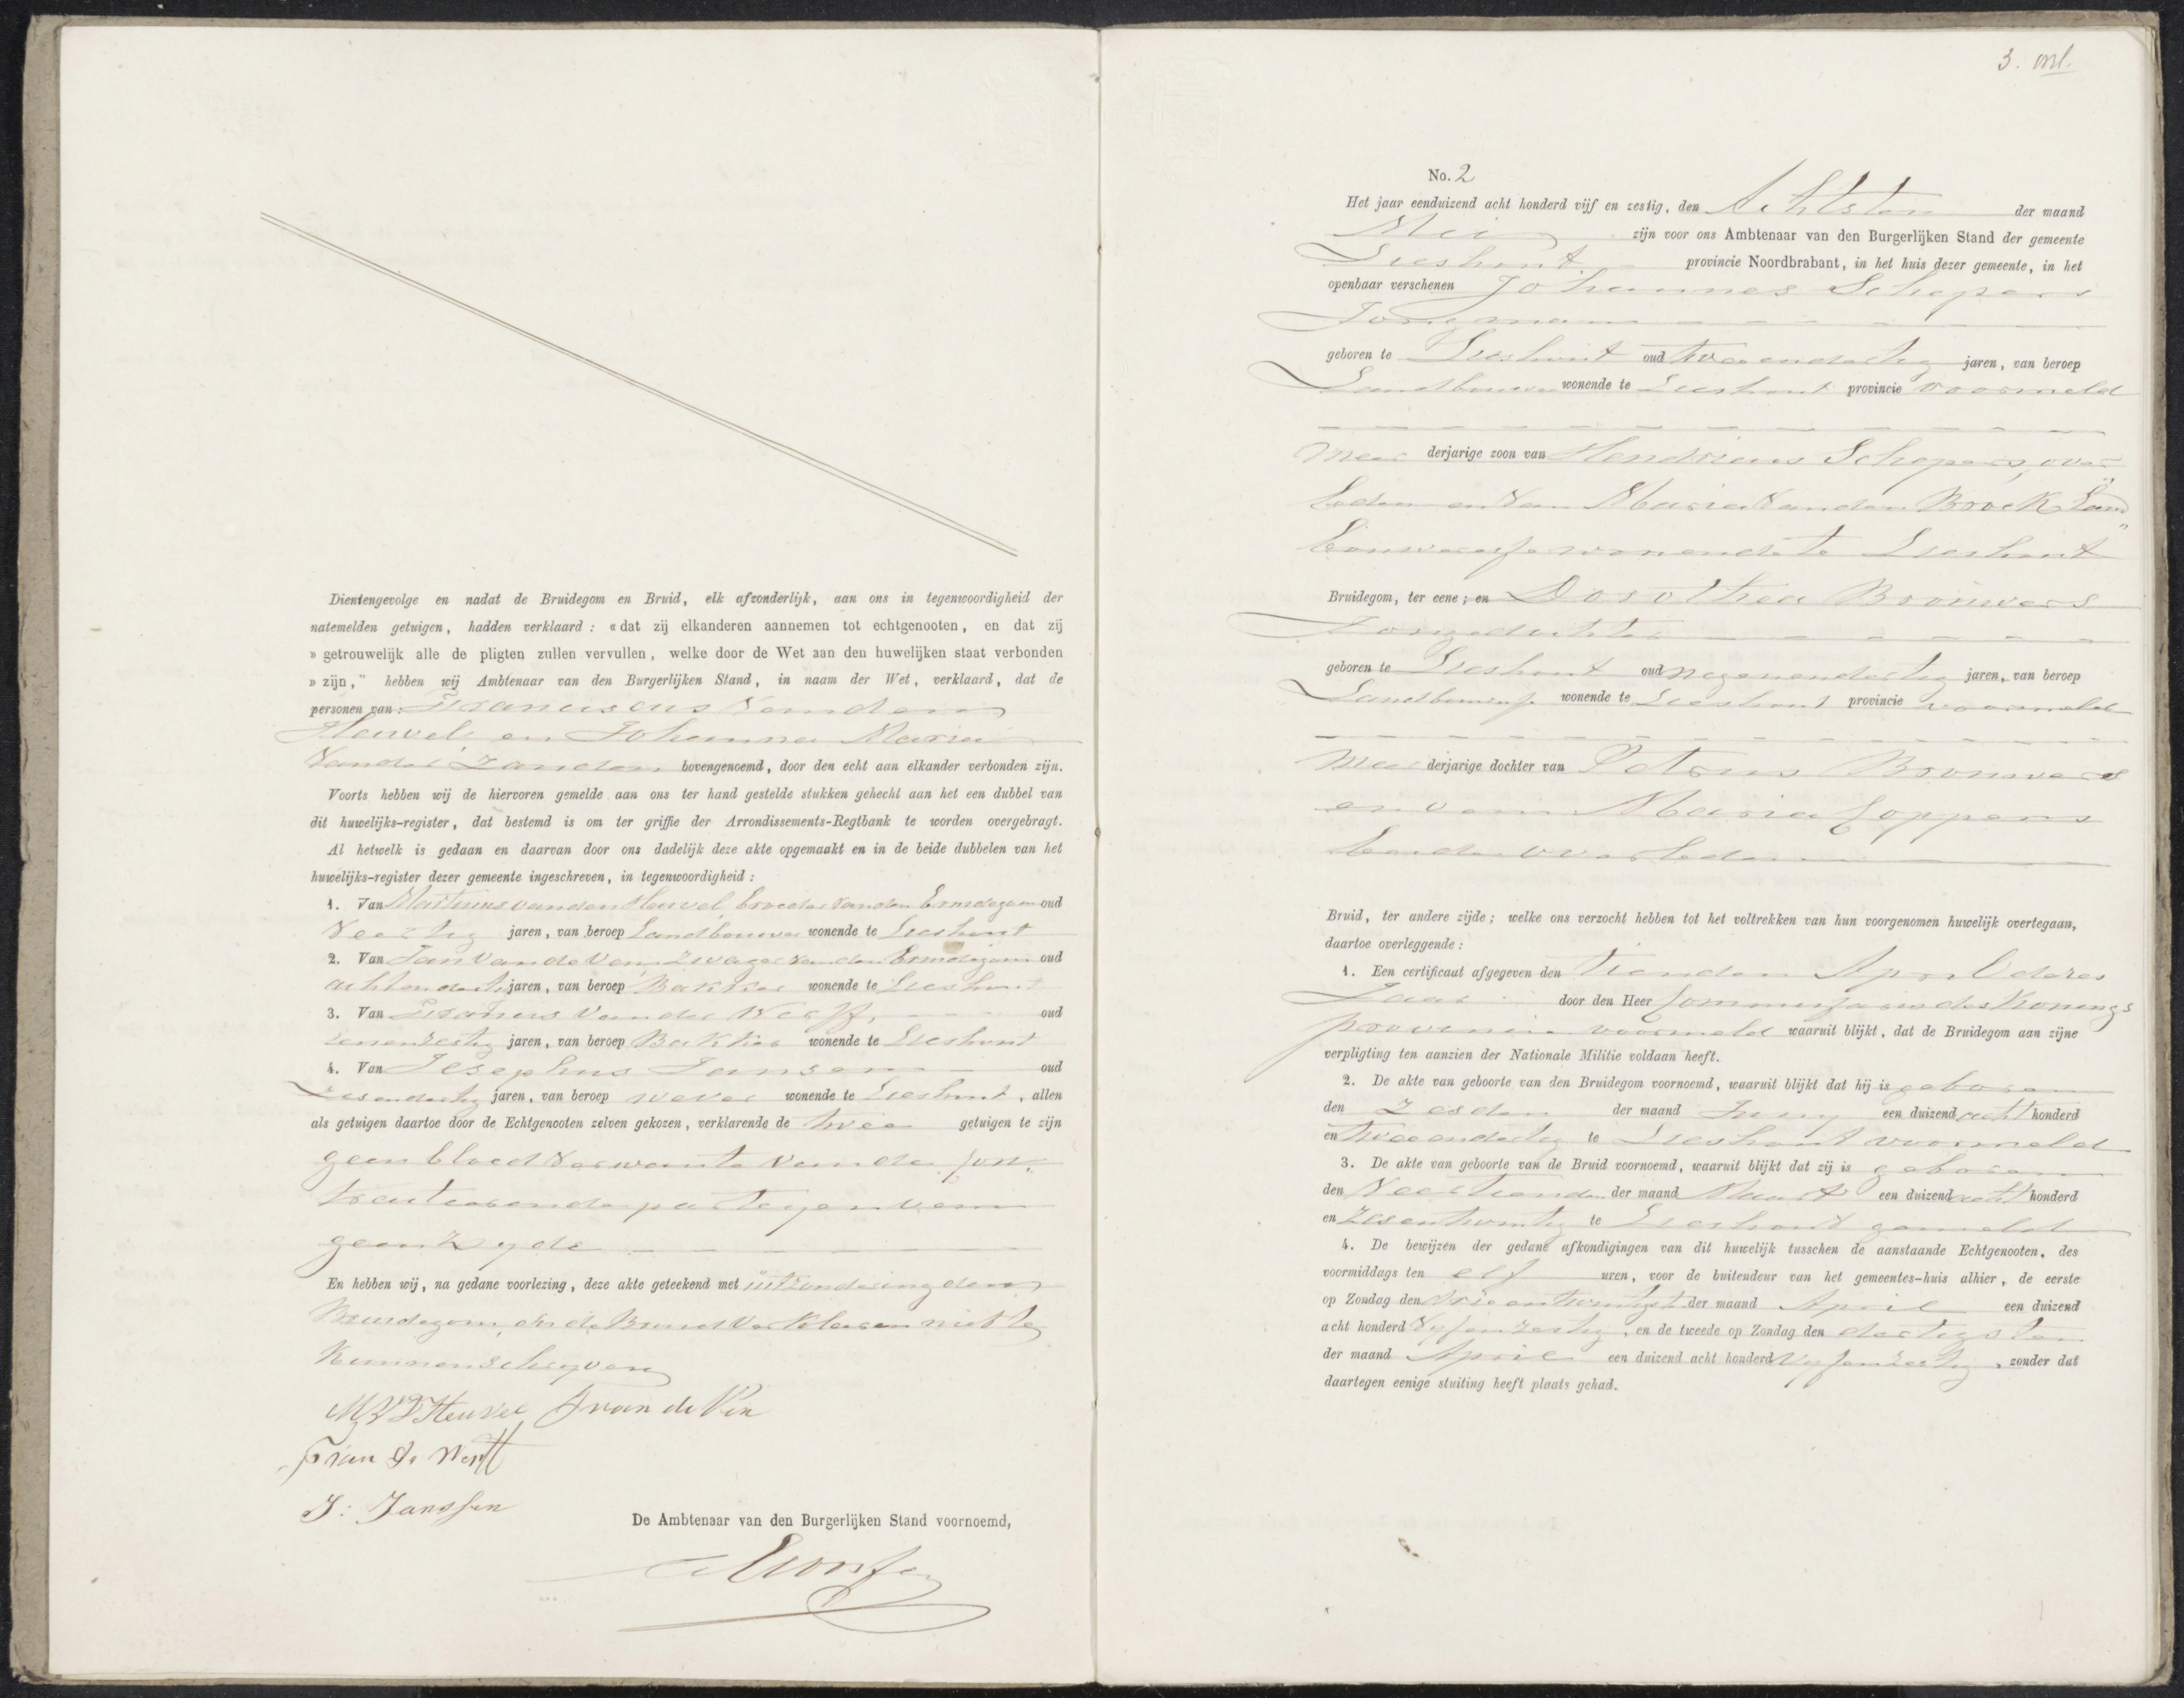 Dientengevolge en nadat de Bruidegom en Bruid, elk afzonderlijk, aan ons in tegenwoordigheid der
natemelden getuigen, hadden verklaard: « dat zij elkanderen aannemen tot echtgenooten, en dat zij
» getrouwelijk alle de pligten zullen vervullen, welke door de Wet aan den huwelijken staat verbonden
» zijn," hebben wij Ambtenaar van den Burgerlijken Stand, in naam der Wet, verklaard, dat de
personen van: Franciscus van den
Heuvel en Johanna Maria
van der Zanden bovengenoemd, door den echt aan elkander verbonden zijn.
Voorts hebben wij de hiervoren gemelde aan ons ter hand gestelde stukken gehecht aan het een dubbel van
dit huwelijks-register, dat bestemd is om ter griffie der Arrondissements-Regtbank te worden overgebragt.
Al hetwelk is gedaan en daarvan door ons dadelijk deze akte opgemaakt en in de beide dubbelen van het
huwelijks-register dezer gemeente ingeschreven, in tegenwoordigheid:
1. Van Martinus van den Heuvel, broeder van den bruidegom oud
Veertig jaren, van beroep Landbouwer wonende te Lieshout
2. Van Jan van de Ven, Zwager van den Bruidegom oud
achtendertig jaren, van beroep Bakker wonende te Lieshout
3. Van Francis van der Werff, oud
zenenzestig jaren, van beroep Bakker wonende te Lieshout
4. Van Josephus Jansen oud
Zesendertig jaren, van beroep wever wonende te Lieshout, allen
als getuigen daartoe door de Echtgenooten zelven gekozen, verklarende de twee getuigen te zijn
geen bloedverwante van de Con„
tracteerende parteyen van
geen Zyde
En hebben wij, na gedane voorlezing, deze akte geteekend met uitzondering den
Bruidegom, en de Bruid verklaren niet te
Kunnen schryven
M V D Heuvel J van de Ven
F van de Werff
J: Janssen
De Ambtenaar van den Burgerlijken Stand voornoemd,
3.
No. 2
Het jaar eenduizend acht honderd vijf en zestig, den Achtsten der maand
Mei zijn voor ons Ambtenaar van den Burgerlijken Stand der gemeente
Lieshout provincie Noordbrabant, in het huis dezer gemeente, in het
openbaar verschenen Johannes Schepers
Jongman
geboren te Lieshout oud tweeendertig jaren, van beroep
Landbouwer wonende te Lieshout provincie voormeld
Meer derjarige zoon van Hendricus Schepers, over
leden en van Maria van den Broek Land„
bouweresse wonende te Lieshout
Bruidegom, ter eene; en Dorothea Brouwers
Jongedochter
geboren te Lieshout oud negenendertig jaren, van beroep
Landbouwersse wonende te Lieshout provincie voormeld
Meer derjarige dochter van Petrus Brouwers
en van Maria Coppens
beide overleden
Bruid, ter andere zijde; welke ons verzocht hebben tot het voltrekken van hun voorgenomen huwelijk overtegaan,
daartoe overleggende:
1. Een certificaat afgegeven den Tienden April dezes
Jaar door den Heer Commissaris des Konings
provincie voormeld waaruit blijkt, dat de Bruidegom aan zijne
verpligting ten aanzien der Nationale Militie voldaan heeft.
2. De akte van geboorte van den Bruidegom voornoemd, waaruit blijkt dat hij is geboren
den Zesden der maand Juny een duizend acht honderd
en tweeendertig te Lieshout voormeld
3. De akte van geboorte van de Bruid voornoemd, waaruit blijkt dat zij is geboren
den Veertienden der maand Maart een duizend acht honderd
en zesentwintig te Lieshout gemeld
4. De bewijzen der gedane afkondigingen van dit huwelijk tusschen de aanstaande Echtgenooten, des
voormiddags ten elf uren, voor de buitendeur van het gemeentes-huis alhier, de eerste
op Zondag den drieentwintigst der maand April een duizend
acht honderd Vyfenzestig, en de tweede op Zondag den dertigsten
der maand April een duizend acht honderd Vyfenzestig, zonder dat
daartegen eenige stuiting heeft plaats gehad.